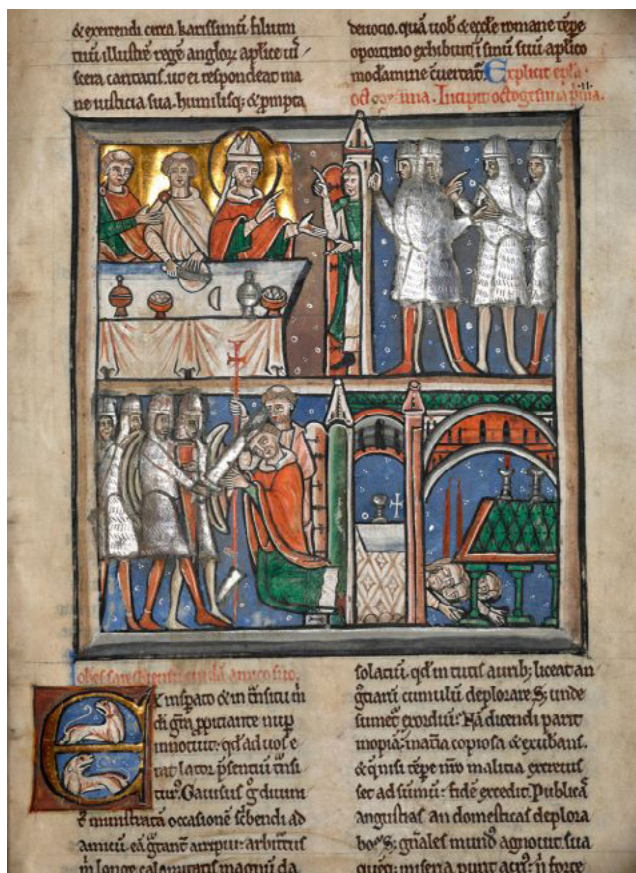 & exercendi circa karissimum filium
tuū illustrē regē anglorꝝ aplice ui
scera caritatis. ut ei respondeat
ne iusticia sua. humilisq; & prompta
deuotio. quā uob & ecclē romane tēpe
oportuno exhibuit ı̄ sinū suū aplico
modamine cuertat. Explicit epla
octogesima. Incipit octogesima prima.
amico suo.
Ex insperato & in tnsitu m
di gra ppitiante nup
innotuit: qd ad uos e
rat lator psentiū tnsi
tur'. Gauisus g diuini
t ministratā occasionē scbendi ad
amicū eā gtant arripui: arbitrat'
in longe calamitatis magnū da
solatiū. qd in tutis aurib; liceat an
gtiarū cumulū deplorare. S; unde
sumet exordiū? Nā dicendi parit
inopiā: matia copiosa & exubans.
tēpe nro malitia
ad sūmū: fidē excedit. Publicas
angustias an domesticas deplora
bo? S; gnales mund agnouit. sua
miseria